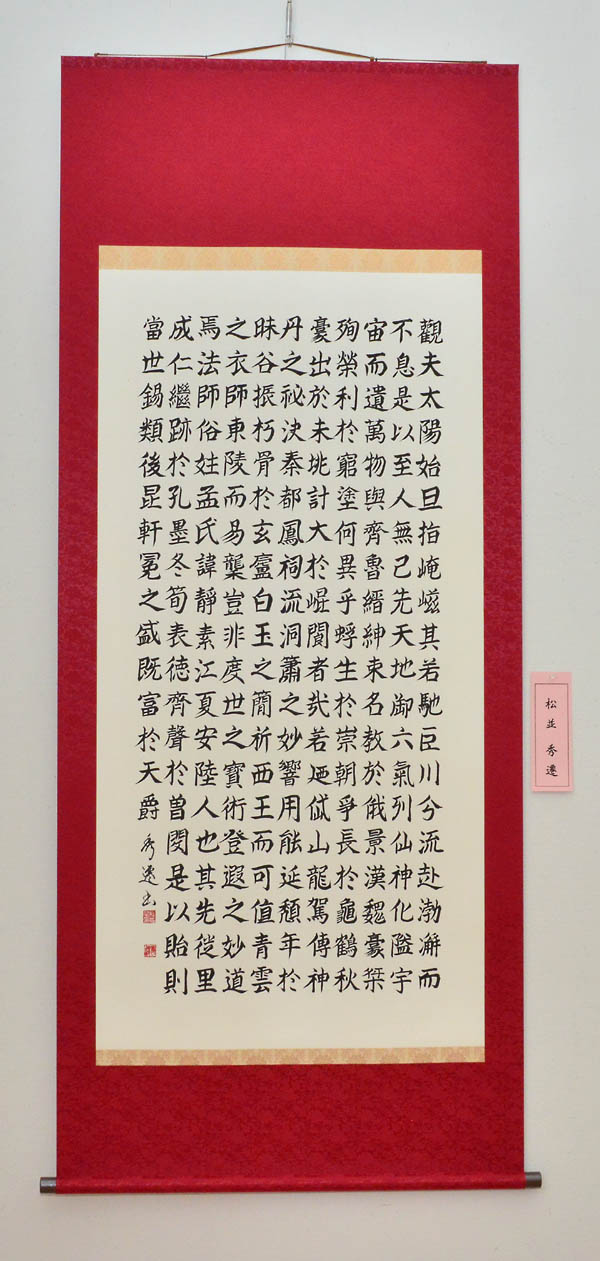 觀夫太陽始旦指崦嵫其若馳巨川分流赴渤澥而
不息是以至人無己先天地御六氣列仙神化隘宇
宙而遺萬物與齊魯縉紳束名教於俄景漢魏豪桀
殉榮利於窮塗何異乎蜉生於崇朝爭長於龜鶴秋
豪出於未垗計大於崐閬者哉若廼岱山龍駕傳神
丹之祕決秦都鳳祠流洞簫之妙響用能延頹年於
昧谷振朽骨於玄廬白玉之簡祈西王而可值青雲
之衣師東陵而易襲豈非度世之寶術登遐之妙道
焉法師俗姓孟氏諱靜素江夏安陸人也其先徙里
成仁繼跡於孔墨冬筍表德齊聲於曾閔是以貽則
當世錫類後昆軒冕之盛既富於天爵 秀遷書
松並 秀遷